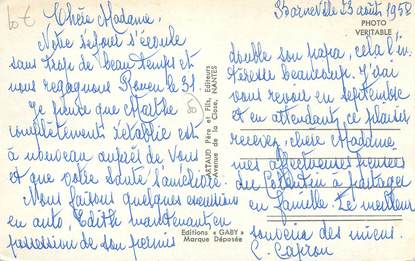 Barneville 23 août 1958
Chère Madame,
Notre séjour s'écoule
sans trop de beau temps et
nous regagnons Rouen le 31.
Je pense que Marthe
complètement rétablie est
à nouveau auprès de vous
et que votre santé s'améliore.
Nous faisons quelques excursions
en auto, Edith maintenant en
possession de son permis
PHOTO
VERITABLE
ARTAUD Père et Fils, Editeurs
Avenue de la Close, NANTES
Editions "GABY"
Marque Déposée
double son papa, cela l'in-
téresse beaucoup. J'irai
vous revoir en septembre
et en attendant ce plaisir
recevez, chère Madame,
mes affectueuses pensées
du Cotentin à partager
en famille. Le meilleur
souvenir des miens.
C. Capron